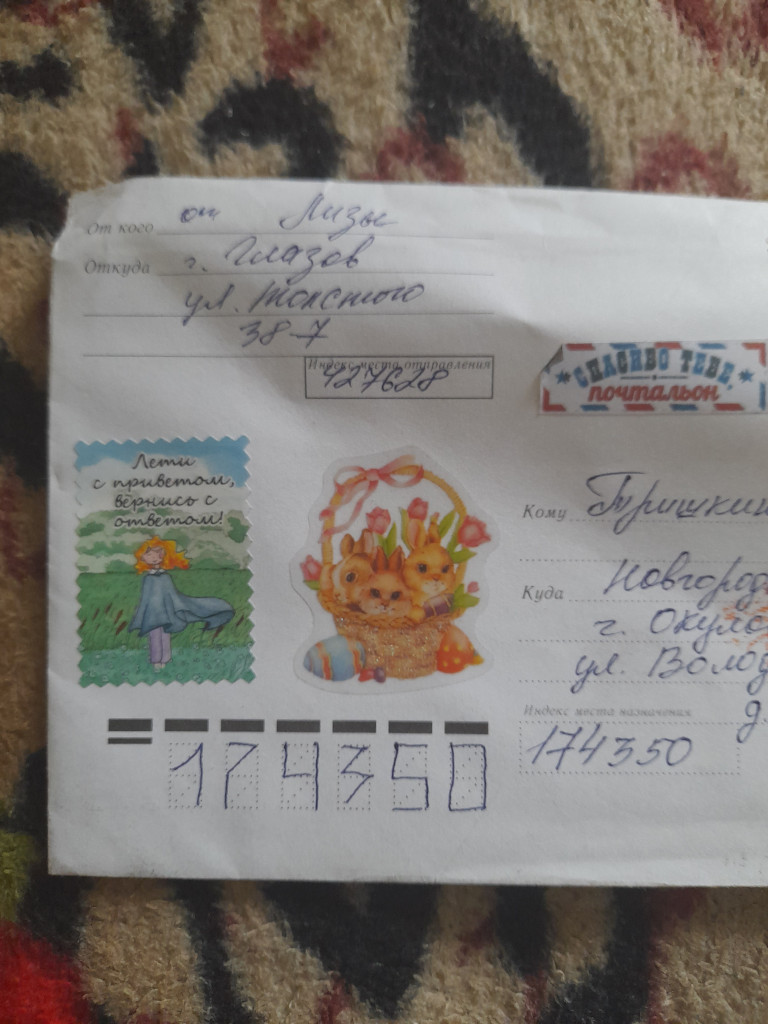 От кого от Лизы
Откуда г. Глазов
ул. Толстого
38-7
Индекс места отправления
427628
СПАСИБО ТЕБЕ,
почтальон
Лети
с приветом,
вернись с
ответом!
Кому Тришкин
Куда Новгород
г. Окуло
ул. Волод
д.
Индекс места назначения
174350
174350